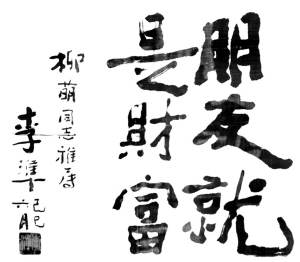 朋友就
是財富
柳萌同志雅屬
李準
己巳